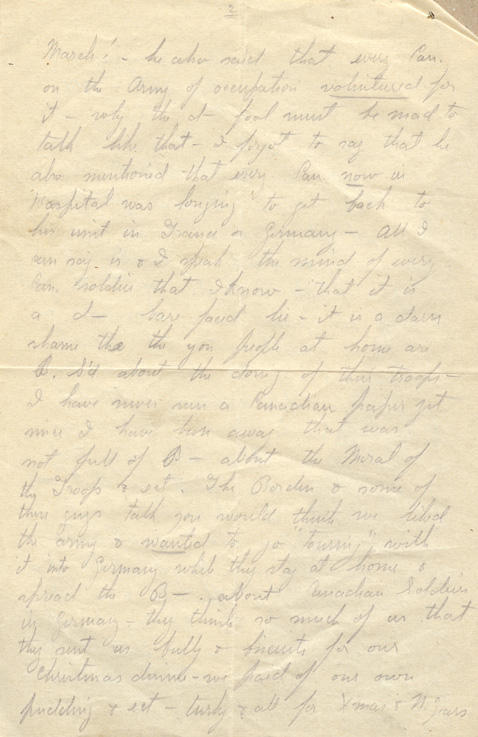 2
March! - he also said that every Can.
on the Army of occupation voluntured for
it - why the d- fool must be mad to
talk like that - I forgot to say that he
also mentioned that every Can now in
Hospital was longing to get back to
his unit in France or Germany - All I
can say is & I speak the mind of every
Can. Soldier that I know - that it is
a d- bare faced lie - it is a darn
shame the the you people at home are
B. S'd about the doing of their troops -
I have never seen a Canadian paper yet
since I have been away that was
not full of B- about the Moral of
the Troops & ect. The Borden & some of
those guys talk you would think we liked
the army & wanted to go "touring" with
it into Germany while they stay at home &
spread the B- about Canadian Soldiers
in Germany - they think so much of us that
they sent us bully & biscuits for our
Christmas dinner - we paid of our own
pudding & ect - turky & all for Xmas & N. Years